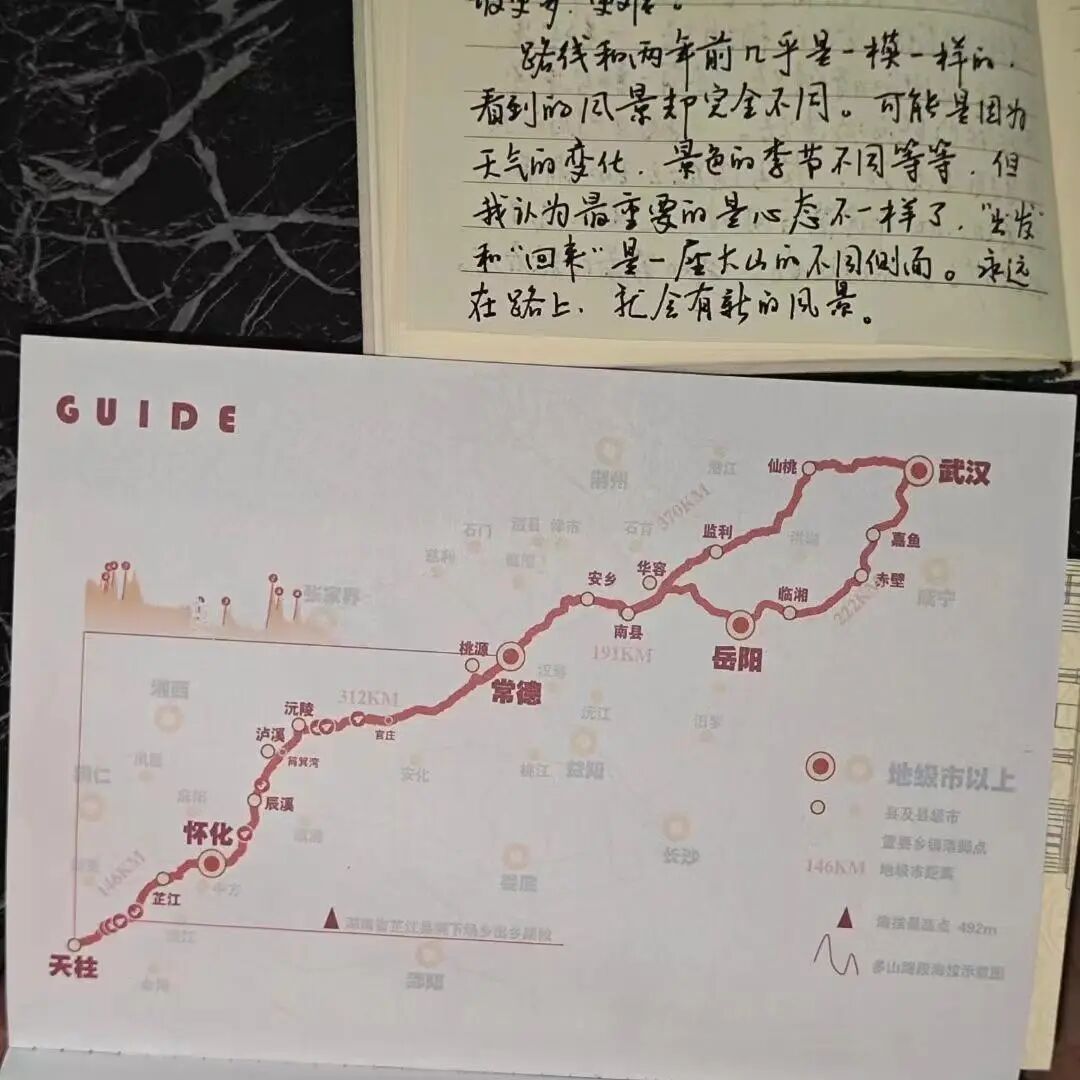 路线和两年前几乎是一模一样的，
看到的风景却完全不同。可能是因为
天气的变化、景色的季节不同等等，但
我认为最重要的是心态不一样了，“出发”
和“回来”是一座大山的不同侧面。永远
在路上，就会有新的风景。
GUIDE
荆州
潜江
仙桃
武汉
370KM
石门
石首
监利
洪湖
嘉鱼
慈利
华容
张家界
安乡
临湘
赤壁
咸宁
222KM
南县
桃源
191KM
岳阳
常德
汉寿
湘西
312KM
沅陵
沅江
汨罗
泸溪
筲箕湾
官庄
安化
桃江
益阳
铜仁
辰溪
怀化
长沙
146KM
芷江
中方
娄底
天柱
地级市以上
县及县级市
重要乡镇落脚点
146KM 地级市距离
海拔最高点 492m
多山路段海拔示意图